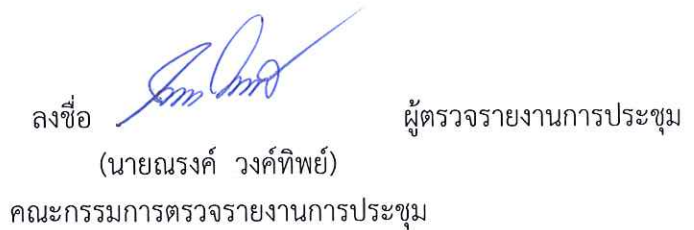 ลงชื่อ ผู้ตรวจรายงานการประชุม
(นายณรงค์ วงค์ทิพย์)
คณะกรรมการตรวจรายงานการประชุม